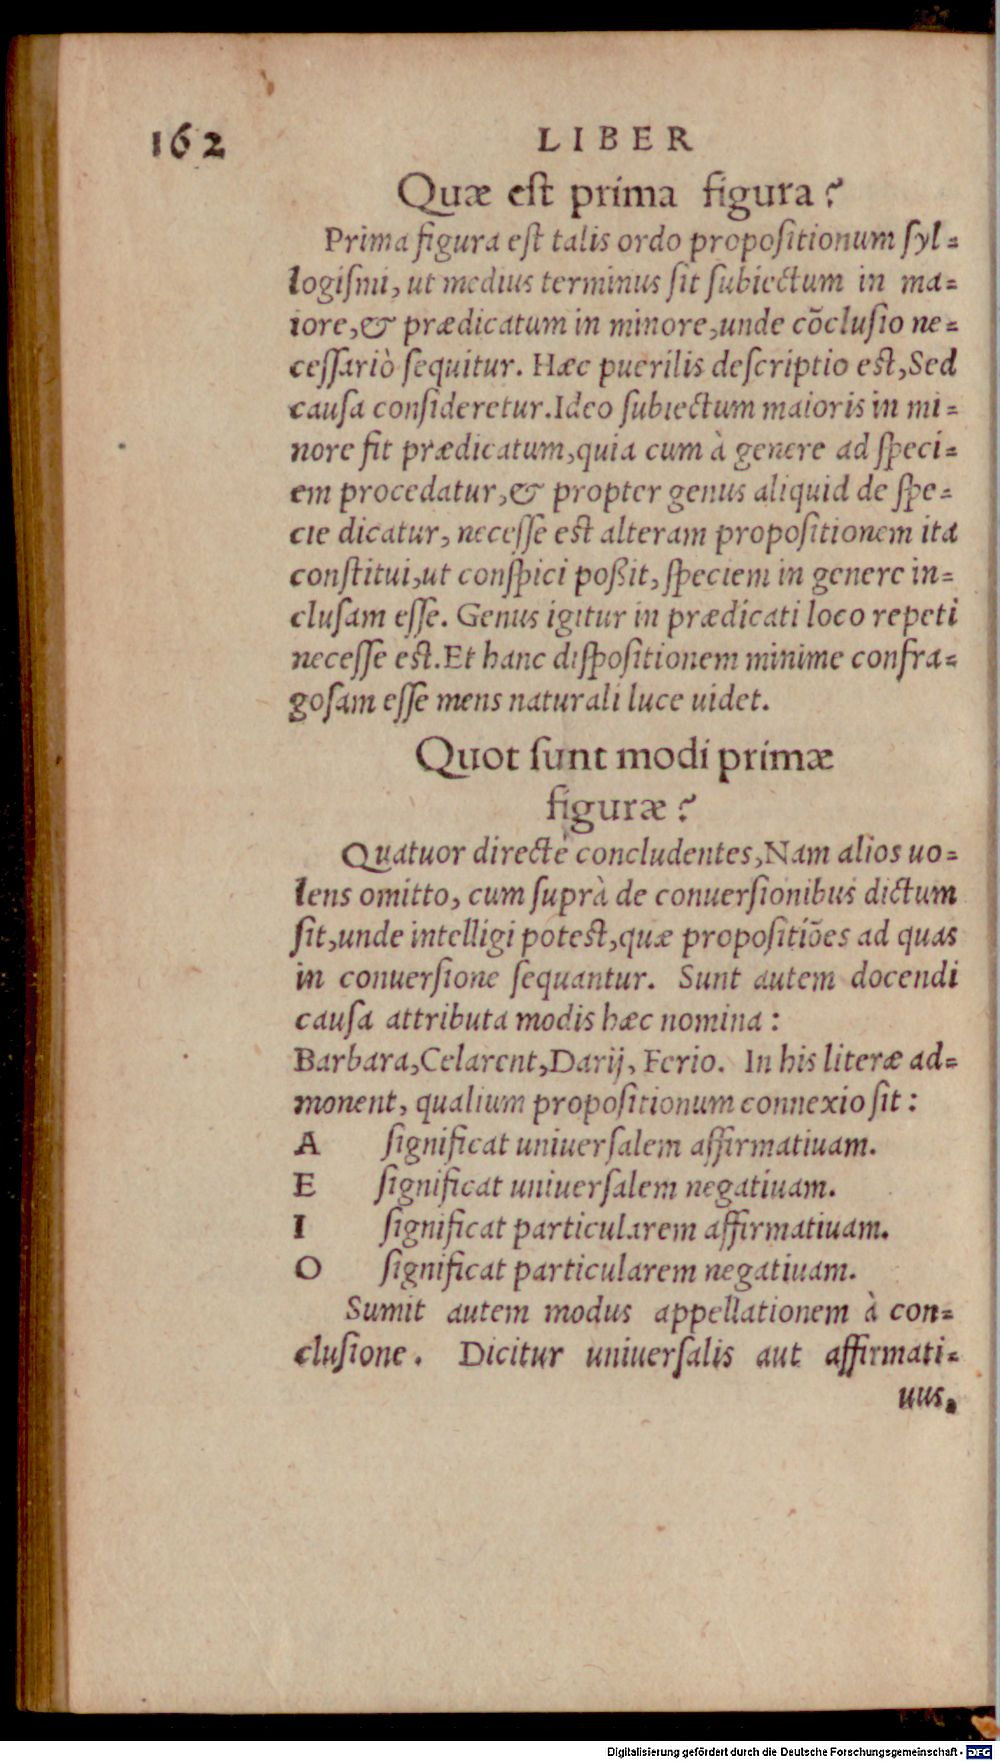 162 LIBER
Quæ est prima figura?
Prima figura est talis ordo propositionum syl=
logismi, ut medius terminus sit subiectum in ma=
iore, & prædicatum in minore, unde cōclusio ne=
cessariò sequitur. Hæc puerilis descriptio est, Sed
causa consideretur. Ideo subiectum maioris in mi=
nore fit prædicatum, quia cum à genere ad speci=
em procedatur, & propter genus aliquid de spe=
cie dicatur, necesse est alteram propositionem ita
constitui, ut conspici poßit, speciem in genere in=
clusam esse. Genus igitur in prædicati loco repeti
necesse est. Et hanc dispositionem minime confra=
gosam esse mens naturali luce uidet.
Quot sunt modi primæ
figuræ?
Quatuor directè concludentes, Nam alios uo=
lens omitto, cum suprà de conuersionibus dictum
sit, unde intelligi potest, quæ propositiōes ad quas
in conuersione sequantur. Sunt autem docendi
causa attributa modis hæc nomina:
Barbara, Celarent, Darij, Ferio. In his literæ ad=
monent, qualium propositionum connexio sit:
A significat uniuersalem affirmatiuam.
E significat uniuersalem negatiuam.
I significat particularem affirmatiuam.
O significat particularem negatiuam.
Sumit autem modus appellationem à con=
clusione. Dicitur uniuersalis aut affirmati=
uus.
Digitalisierung gefördert durch die Deutsche Forschungsgemeinschaft - DFG